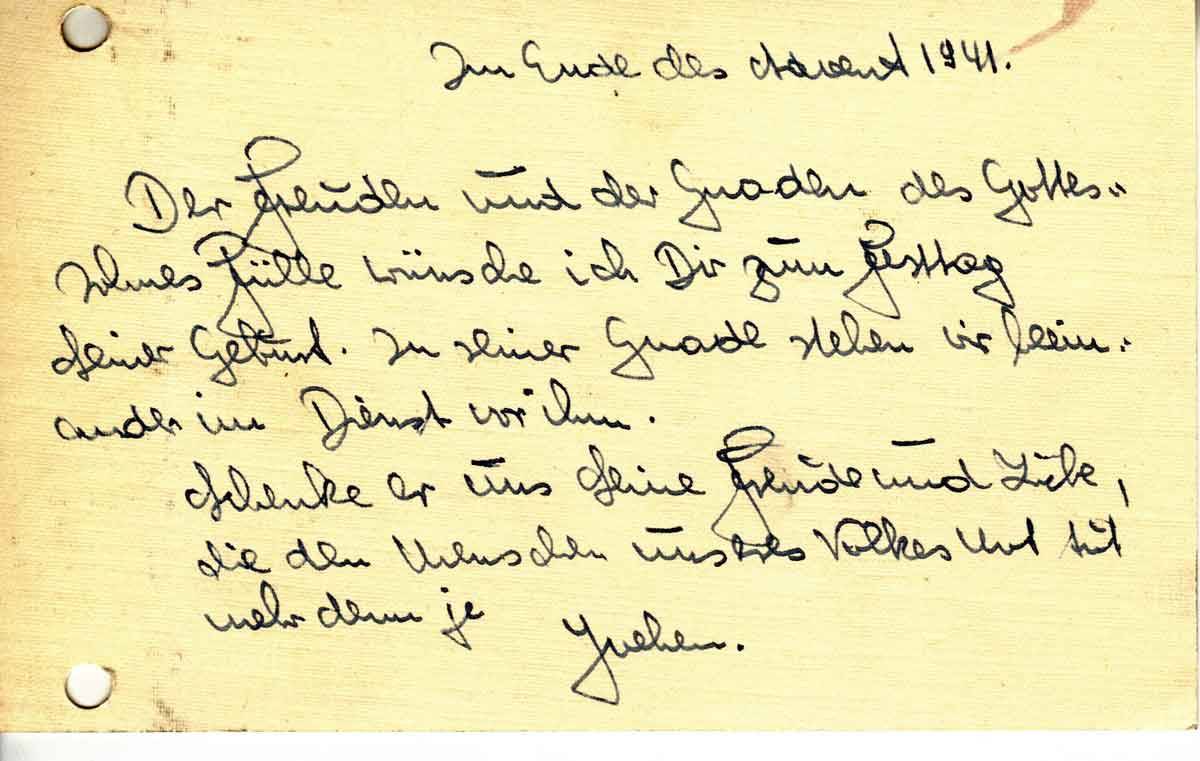 Im Ende des Advent 1941.
Der Freuden und der Gnaden des Gottes-
sohnes Fülle wünsche ich Dir zum Festtag
seiner Geburt. In seiner Gnade stehen wir bein-
ander im Dienst vor ihm.
Schenke er uns seine Freude und Liebe,
die den Menschen unsres Volkes Not tut
mehr denn je